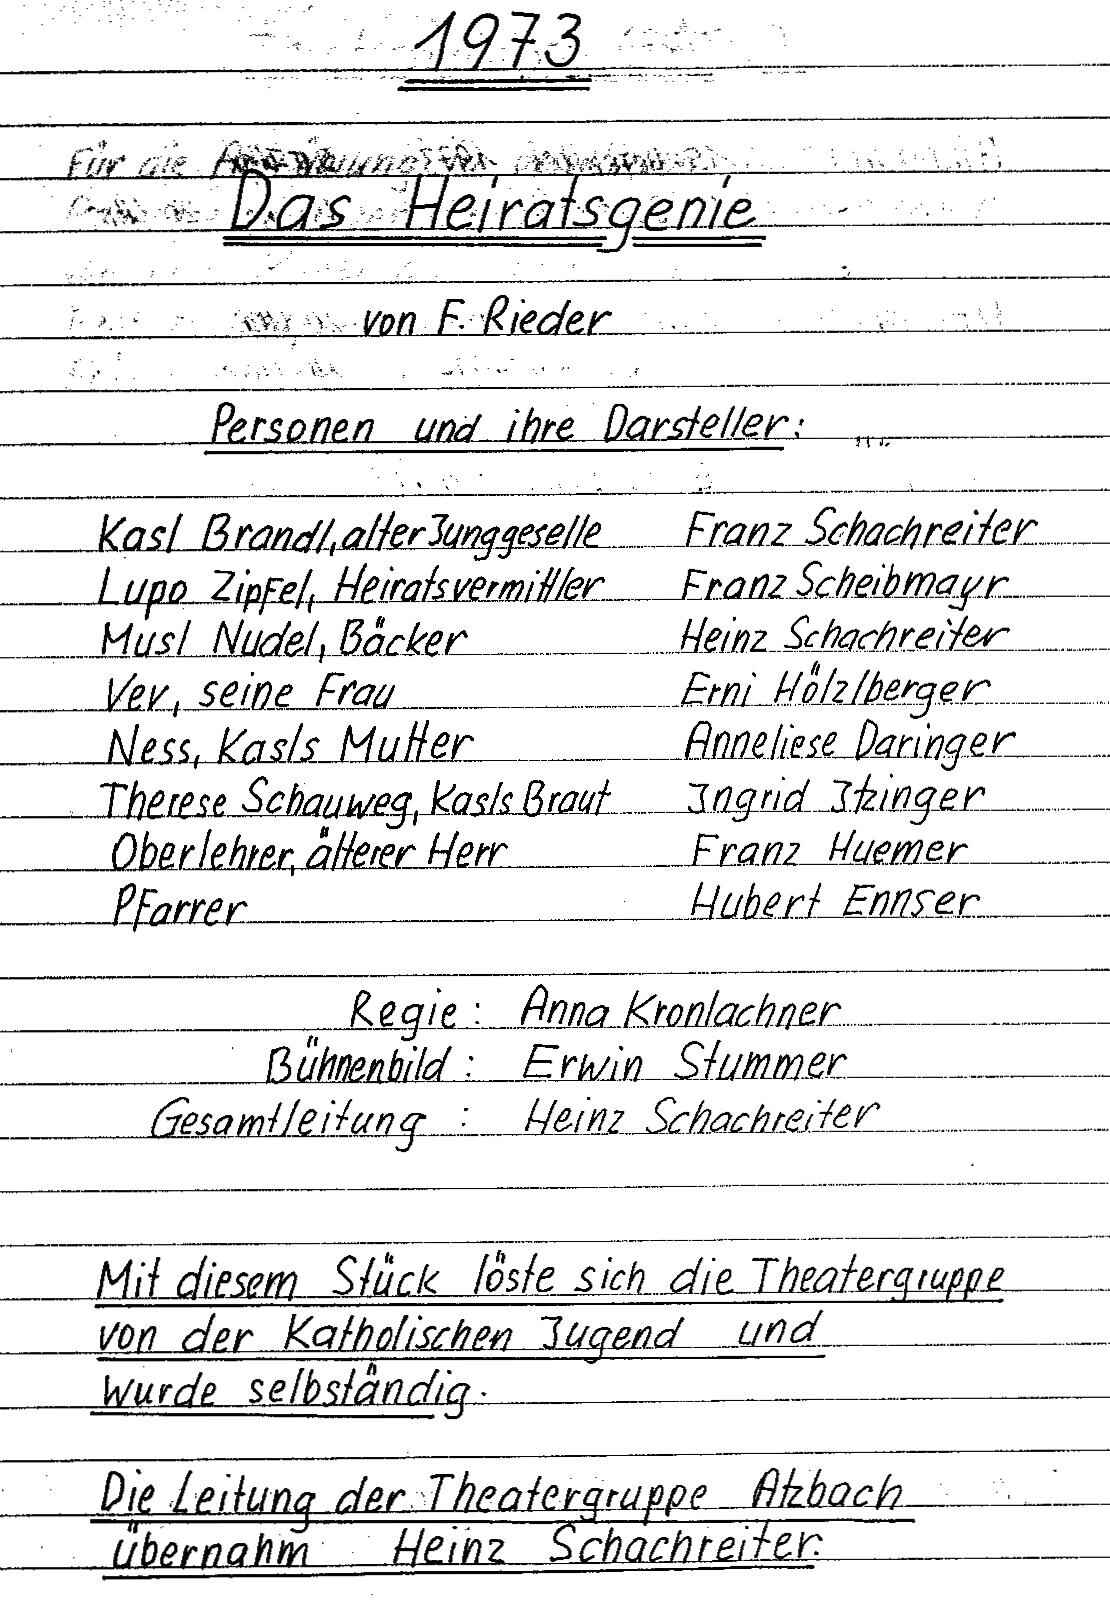 1973
Für die
Das Heiratsgenie
von F. Rieder
Personen und ihre Darsteller:
Kasl Brandl, alter Junggeselle Franz Schachreiter
Lupo Zipfel, Heiratsvermittler Franz Scheibmayr
Musl Nudel, Bäcker Heinz Schachreiter
Vev, seine Frau Erni Hölzlberger
Ness, Kasls Mutter Anneliese Daringer
Therese Schauweg, Kasls Braut Ingrid Itzinger
Oberlehrer, älterer Herr Franz Huemer
Pfarrer Hubert Ennser
Regie: Anna Kronlachner
Bühnenbild: Erwin Stummer
Gesamtleitung : Heinz Schachreiter
Mit diesem Stück löste sich die Theatergruppe
von der Katholischen Jugend und
wurde selbständig.
Die Leitung der Theatergruppe Atzbach
übernahm Heinz Schachreiter.